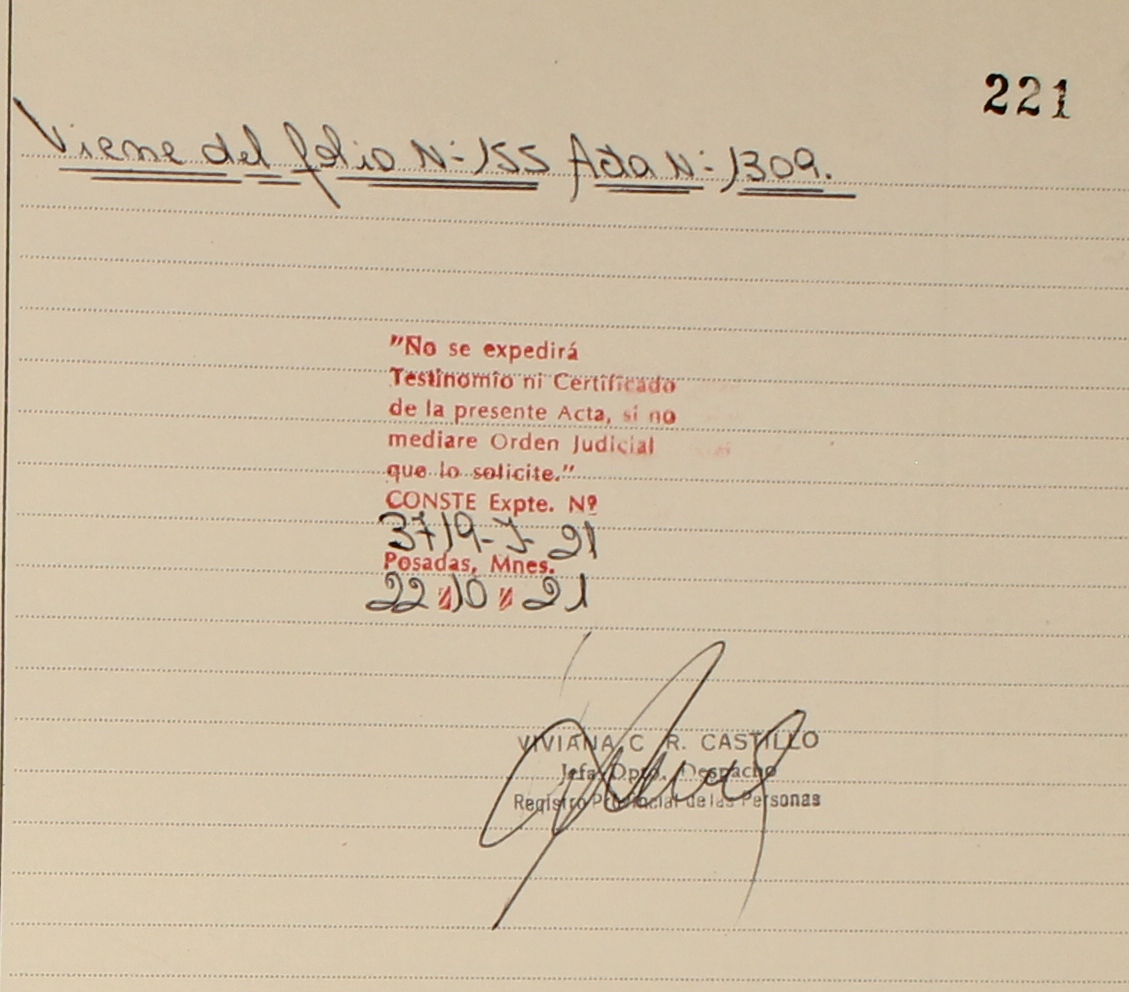 221
Viene del folio N-155 Acta N-1309.
"No se expedirá
Testinomio ni Certificado
de la presente Acta, si no
mediare Orden Judicial
que lo solicite."
CONSTE Expte. Nº
3719-J-21
Posadas, Mnes.
22/10/21
VIVIANA C R. CASTILLO
Jefa Dpto. Despacho
Registro Provincial de las Personas